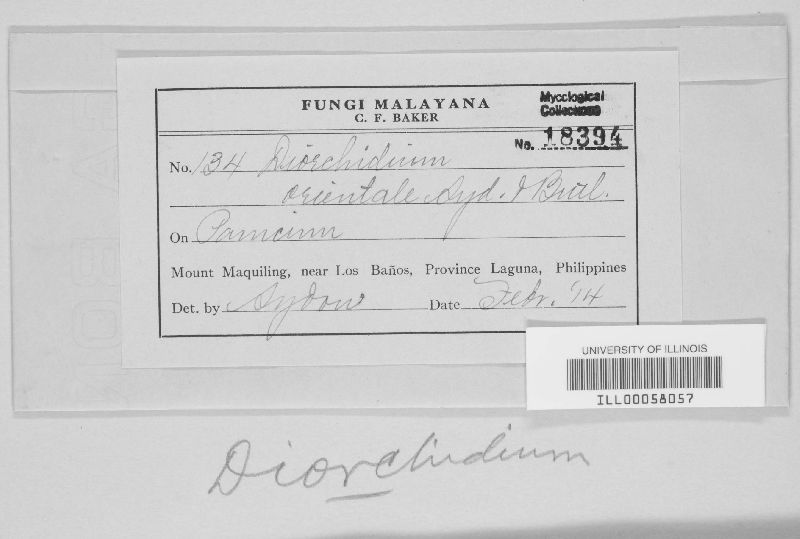 FUNGI MALAYANA
C. F. BAKER
Mycological
Collections
No. 18394
No. 134 Diorchidium
orientale Syd. & Butl.
On Panicum
Mount Maquiling, near Los Baños, Province Laguna, Philippines
Det. by Sydow Date Febr. '14
UNIVERSITY OF ILLINOIS
ILL00058057
Diorchidium